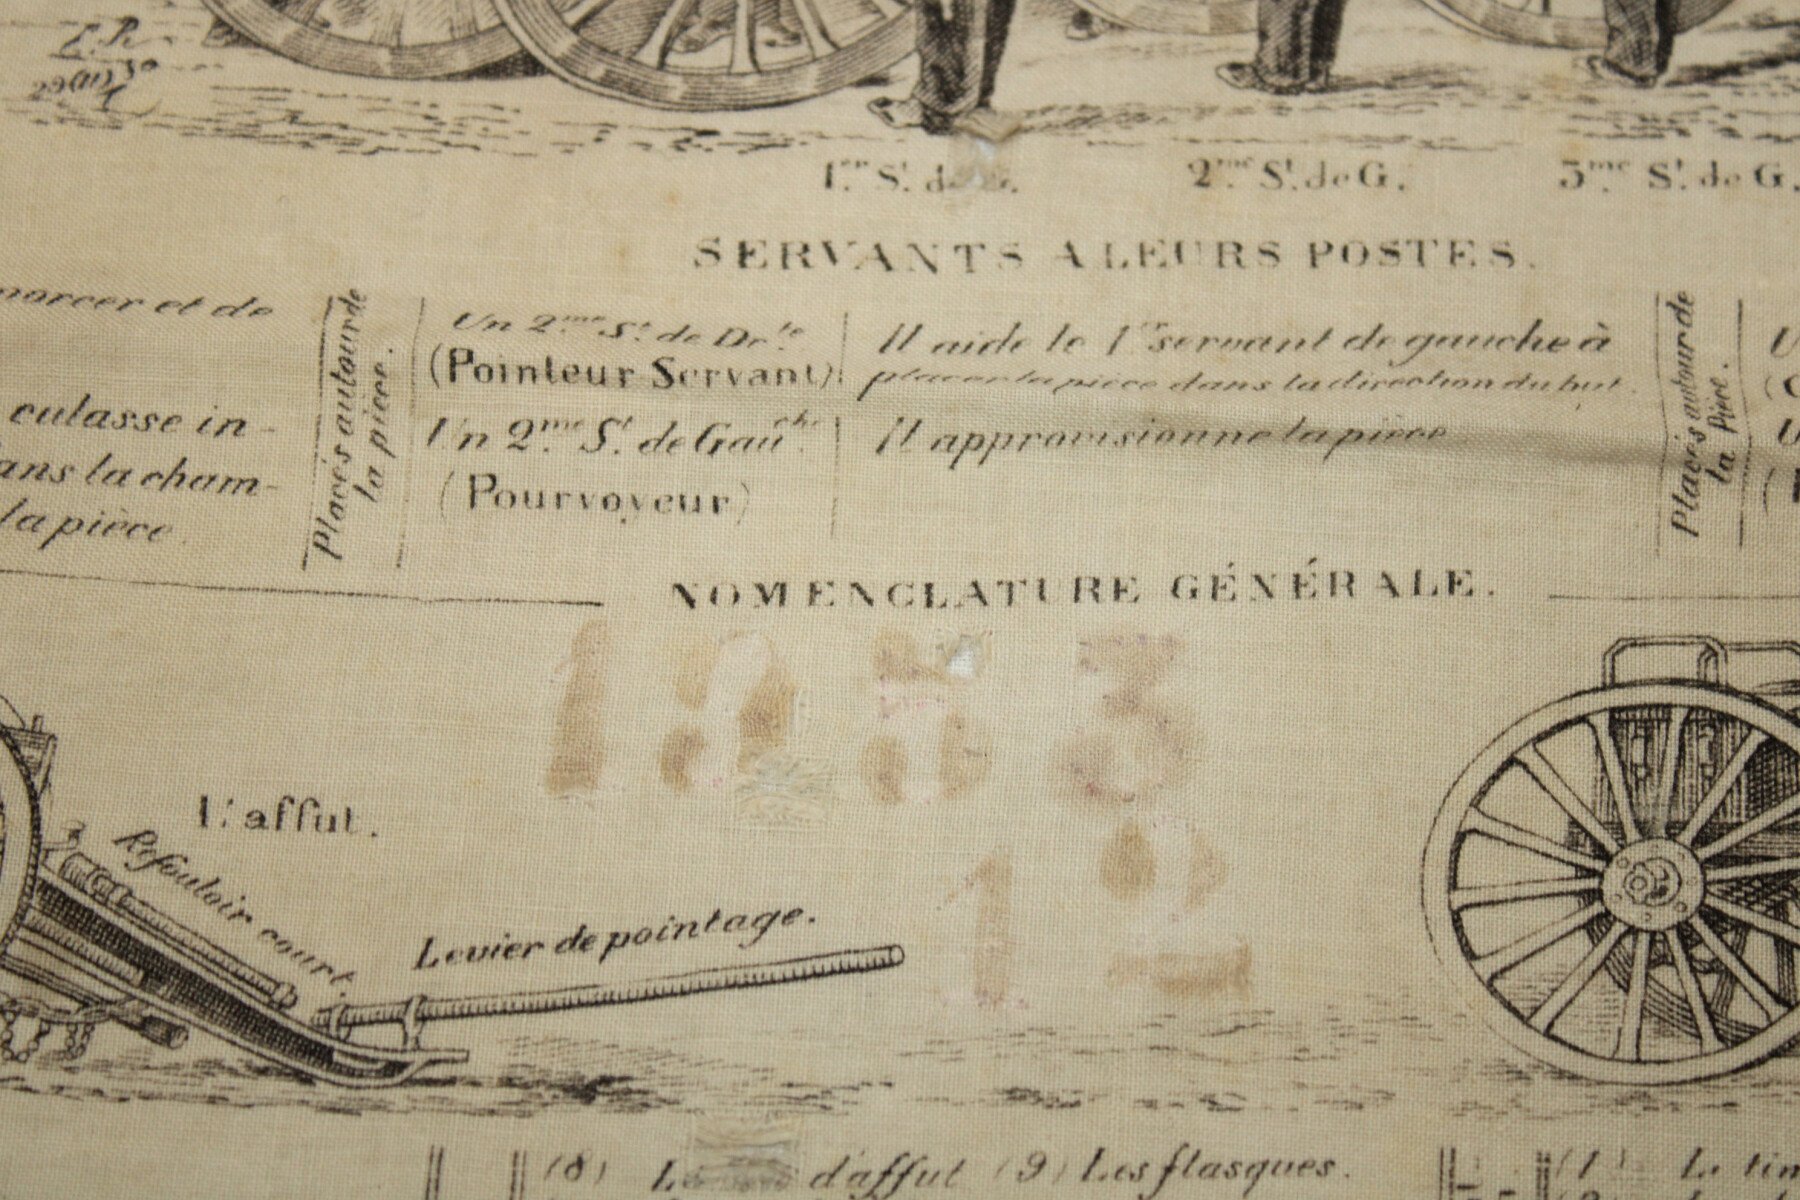 E.R.
1.er S.t de G.
2.me S.t de G.
3.me S.t de G.
SERVANTS A LEURS POSTES.
et de
culasse in-
ans la cham-
la pièce.
Placés autour de
la pièce.
Un 2.me S.t de Dr.te
(Pointeur Servant)
Un 2.me S.t de Gau.che
(Pourvoyeur)
Il aide le 1.er servant de gauche à
placer la pièce dans la direction du but.
Il approvisionne la pièce
Placés autour de
la Pièce.
NOMENCLATURE GÉNÉRALE.
12
L'affut.
Refouloir court.
Levier de pointage.
(8) d'affut (9) Les flasques.
(1)